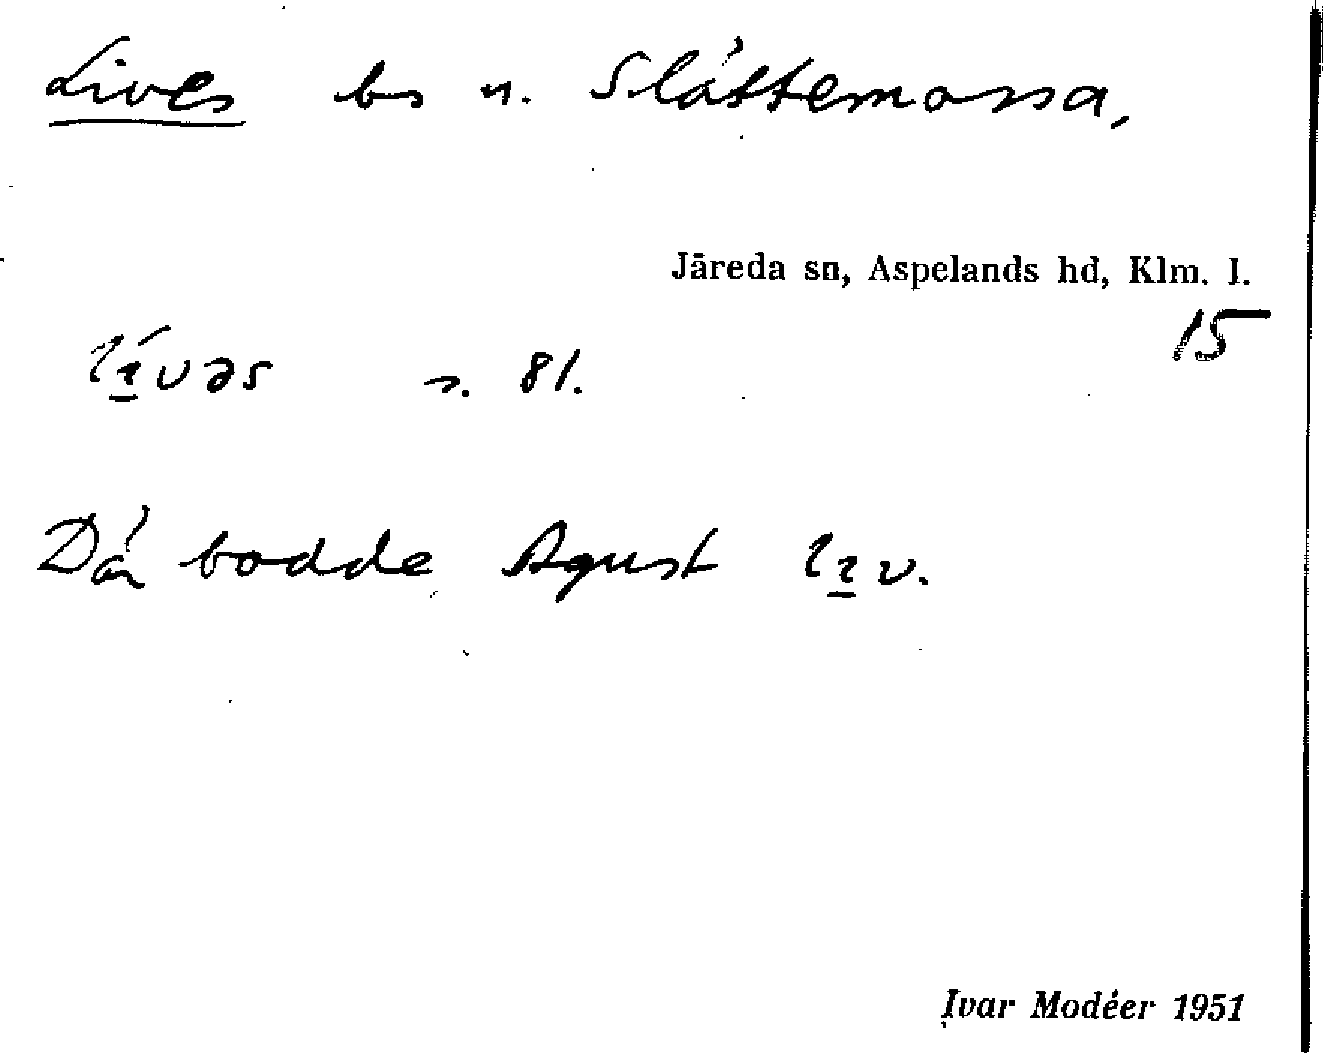 Lives bs u. Slåttemossa,
Järeda sn, Aspelands hd, Klm. l.
15
lívəs s. 81.
Där bodde Agust lɪv.
Ivar Modéer 1951